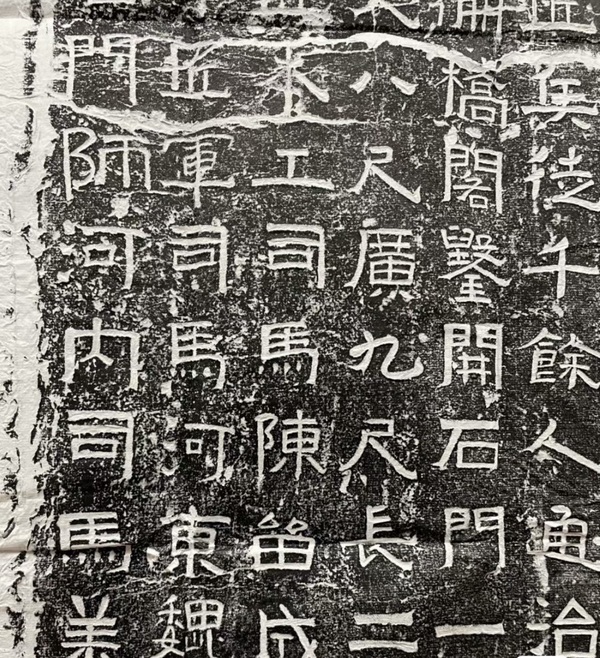 徒千餘人通治
橋閣鑿開石門一
八尺廣九尺長二
木工司馬陳留成
匠軍司馬河東魏
門師河內司馬